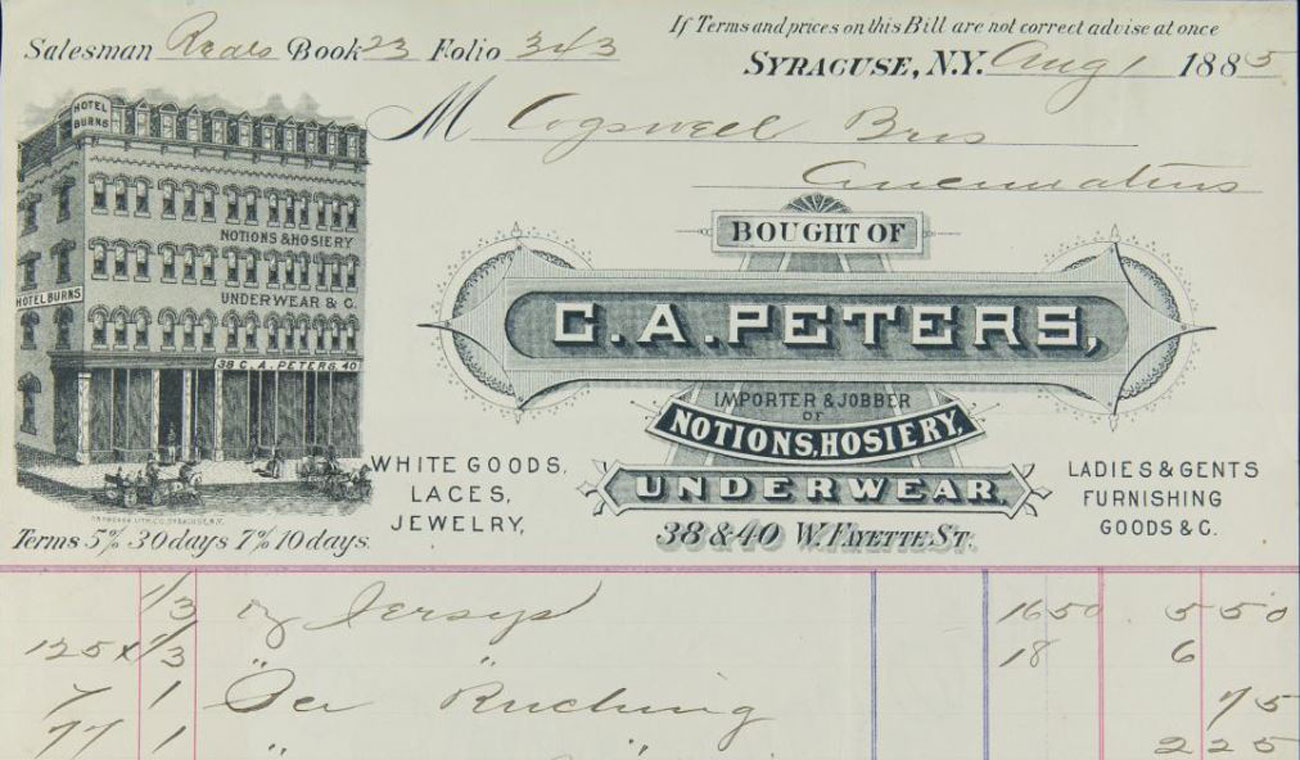 If Terms and prices on this Bill are not correct advise at once
Salesman Reals Book 23 Folio 343
SYRACUSE, N.Y. Aug 1 1885
M Cogswell Bros
Cincinnatus
HOTEL
BURNS
NOTIONS & HOSIERY
UNDERWEAR & C.
HOTEL BURNS
38 C. A. PETERS. 40
BOUGHT OF
C. A. PETERS,
IMPORTER & JOBBER
OF
NOTIONS, HOSIERY,
UNDERWEAR,
38 & 40 W. FAYETTE ST.
WHITE GOODS,
LACES,
JEWELRY,
LADIES & GENTS
FURNISHING
GOODS & C.
Terms 5% 30 days 7% 10 days.
1/3 Dz Jersys 16 50 5 50
125 x 1/3 " " 18 6
7 1 Ruching 75
77 1 " " 2 25